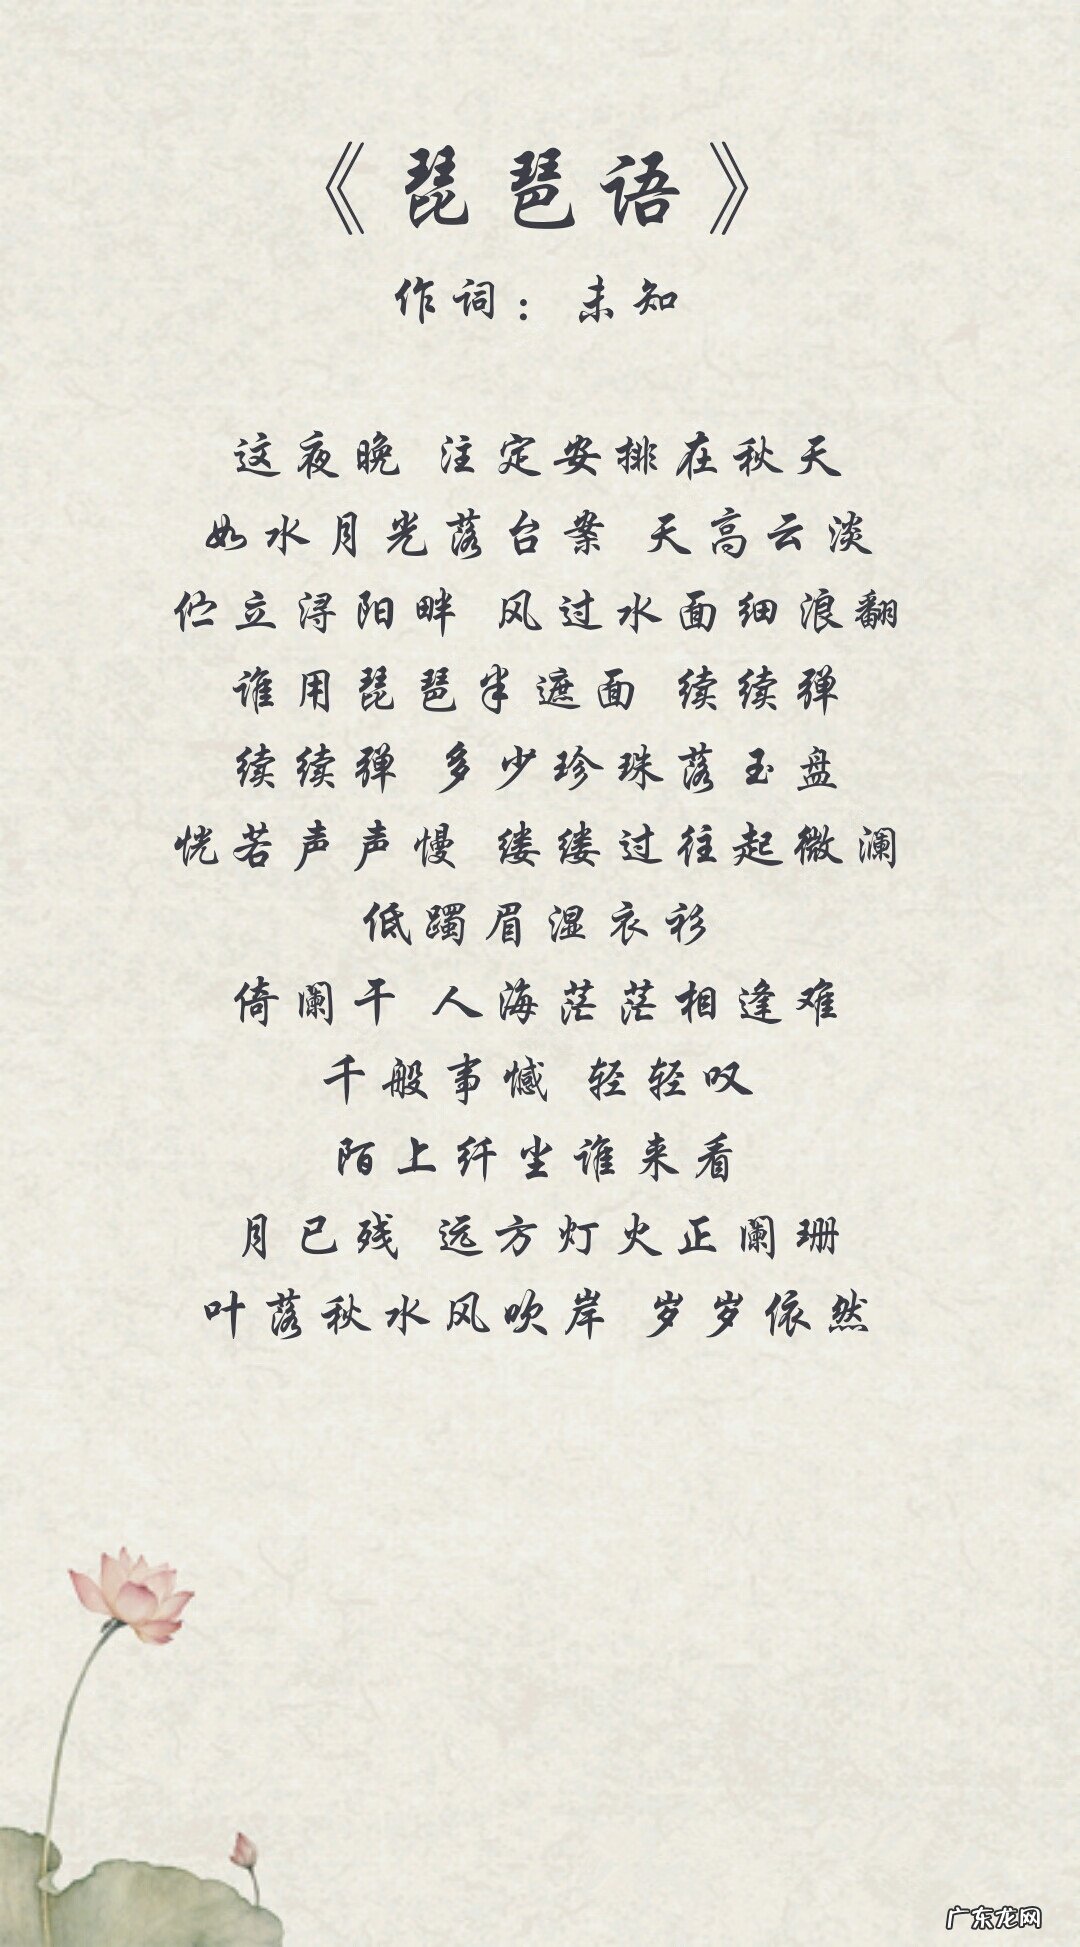 《琵琶语》
作词：未知
这夜晚 注定安排在秋天
如水月光落台案 天高云淡
伫立浔阳畔 风过水面细浪翻
谁用琵琶半遮面 续续弹
续续弹 多少珍珠落玉盘
恍若声声慢 缕缕过往起微澜
低躅眉湿衣衫
倚阑干 人海茫茫相逢难
千般事憾 轻轻叹
陌上纤尘谁来看
月已残 远方灯火正阑珊
叶落秋水风吹岸 岁岁依然
广东龙网